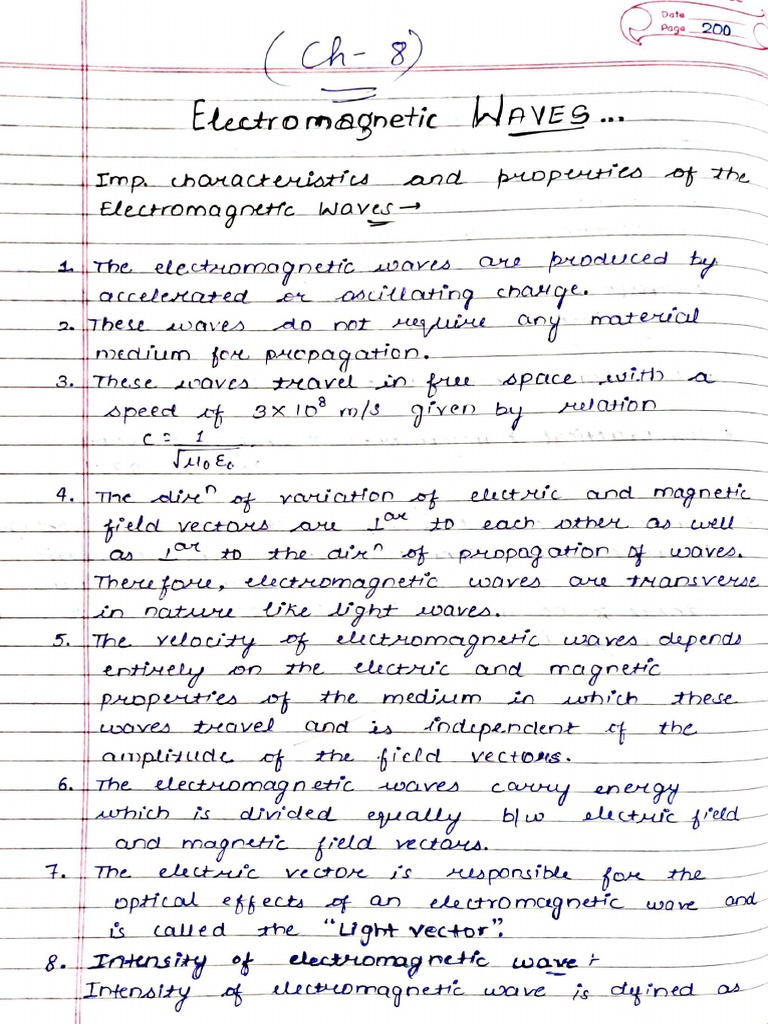 Date
Page 200
(Ch - 8)
Electromagnetic WAVES...
Imp. characteristics and properties of the
Electromagnetic Waves →
1. The electromagnetic waves are produced by
accelerated or oscillating charge.
2. These waves do not require any material
medium for propagation.
3. These waves travel in free space with a
speed of 3×10⁸ m/s given by relation
c = 1
√μ₀ε₀
4. The dirⁿ of variation of electric and magnetic
field vectors are ⊥ᵃʳ to each other as well
as ⊥ᵃʳ to the dirⁿ of propagation of waves.
Therefore, electromagnetic waves are transverse
in nature like light waves.
5. The velocity of electromagnetic waves depends
entirely on the electric and magnetic
properties of the medium in which these
waves travel and is independent of the
amplitude of the field vectors.
6. The electromagnetic waves carry energy
which is divided equally b/w electric field
and magnetic field vectors.
7. The electric vector is responsible for the
optical effects of an electromagnetic wave and
is called the "Light vector".
8. Intensity of electromagnetic wave :-
Intensity of electromagnetic wave is defined as